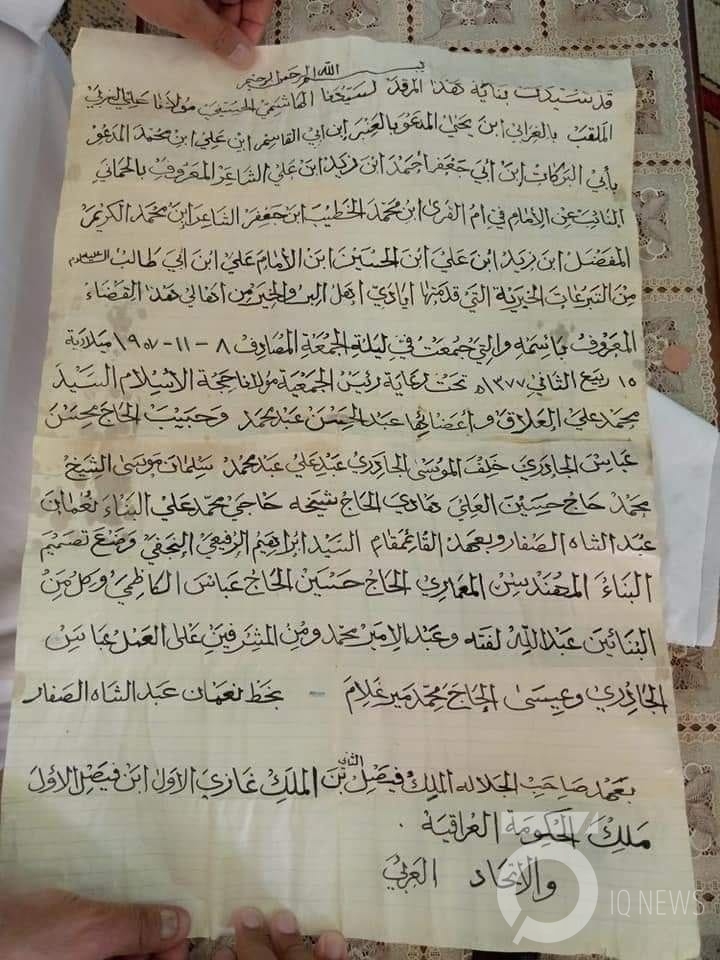 بسم الله الرحمن الرحيم
قد شيدت بناية هذا المرقد لسيدنا الهاشمي الحسيني مولانا علي الغربي
الملقب بالعراقي ابن يحيى المدعو بالعنبر ابن ابي القاسم ابن علي ابن محمد المدعو
بأبي البركات إبن أبي جعفر احمد ابن زيد ابن علي الشاعر المعروف بالحماني
النائب عن الإمام في ام القرى ابن محمد الخطيب ابن جعفر الشاعر إبن محمد الكريم
المفضل ابن زيد ابن علي ابن الحسين ابن الأمام علي ابن ابي طالب
من التبرعات الخيرية التي قدمتها ايادي إهل البر والخير من اهالي هذا القضاء
المعروف باسمه والتي جمعت في ليلة الجمعة المصادف ٨ - ١١ - ١٩٥٧ ميلادية
١٥ ربيع الثاني ١٣٧٧ه تحت رعاية رئيس الجمعية مولانا حجة الأسلام السيد
محمد علي العلاق وأعضائها عبد الحسن عبد محمد وحبيب الحاج محسن
عباس الجادري خلف الموسى الجادري عبد علي عبد محمد سلمان موسى الشيخ
محمد حاج حسين العلي هادي الحاج شيحه حاجي محمد علي البناء نعمان
عبد الشاه الصفار وبعهد القائمقام السيد ابراهيم الرفيعي النجفي وضع تصميم
البناء المهندس المعماري الحاج حسين الحاج عباس الكاظمي وكل من
البنائين عبد الله لفته وعبد الامير محمد ومن المشرفين على العمل عباس
الجادري وعيسى الحاج محمد مير غلام - بخط نعمان عبد الشاه الصفار
بعهد صاحب الجلاله الملك فيصل الثاني بن الملك غازي الاول ابن فيصل الأول
ملك الحكومة العراقية .
والإتحاد العربي
IQ NEWS